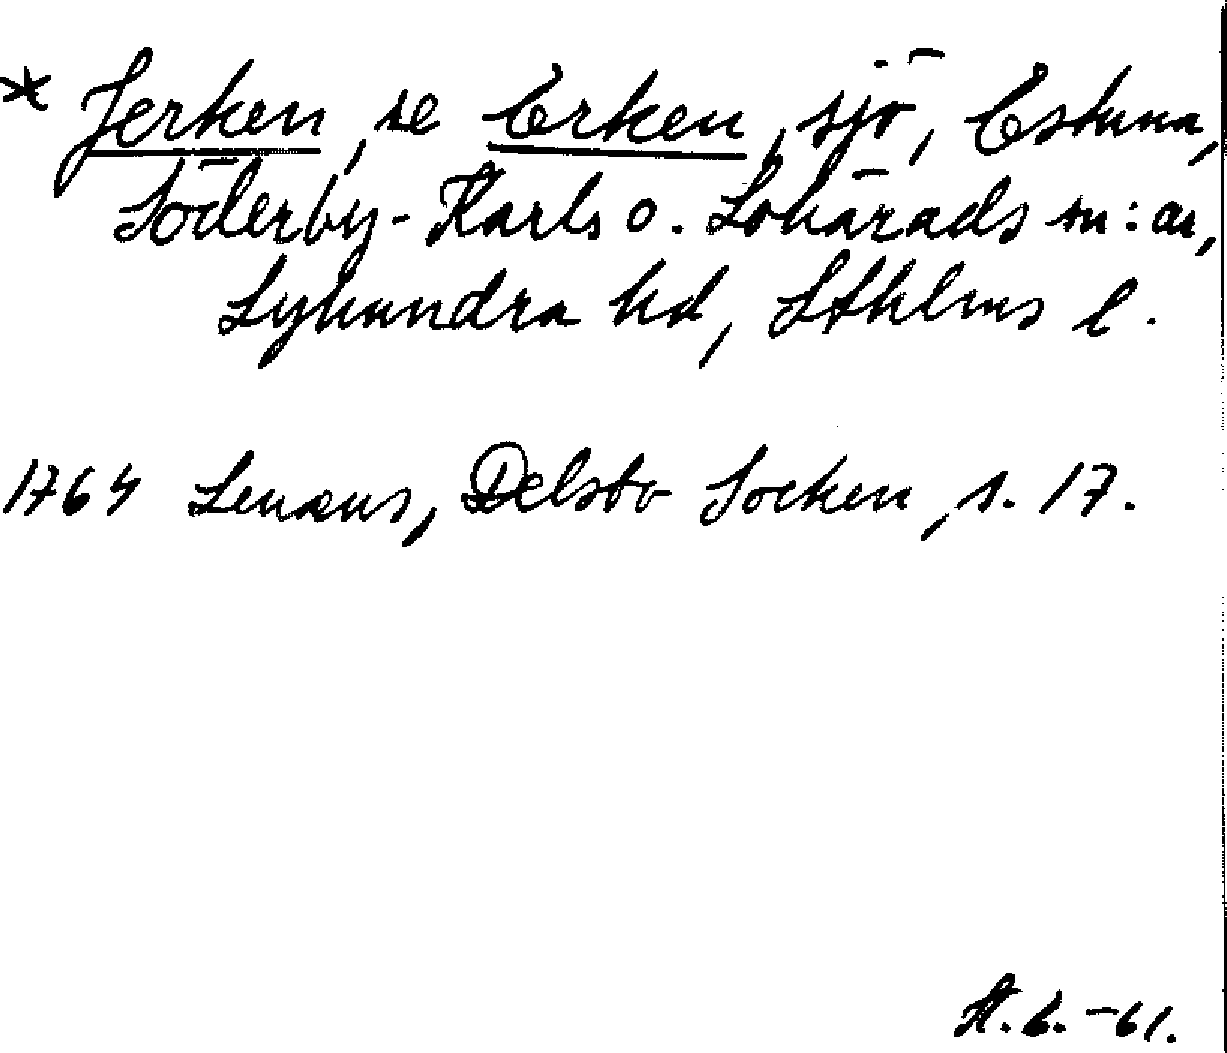 * Jerken, se Erken, sjö, Estuna,
Söderby-Karls o. Lohärads sn:ar,
Lyhundra hd, Sthlms l.
1764 Lenæus, Delsbo Socken, s. 17.
-61.